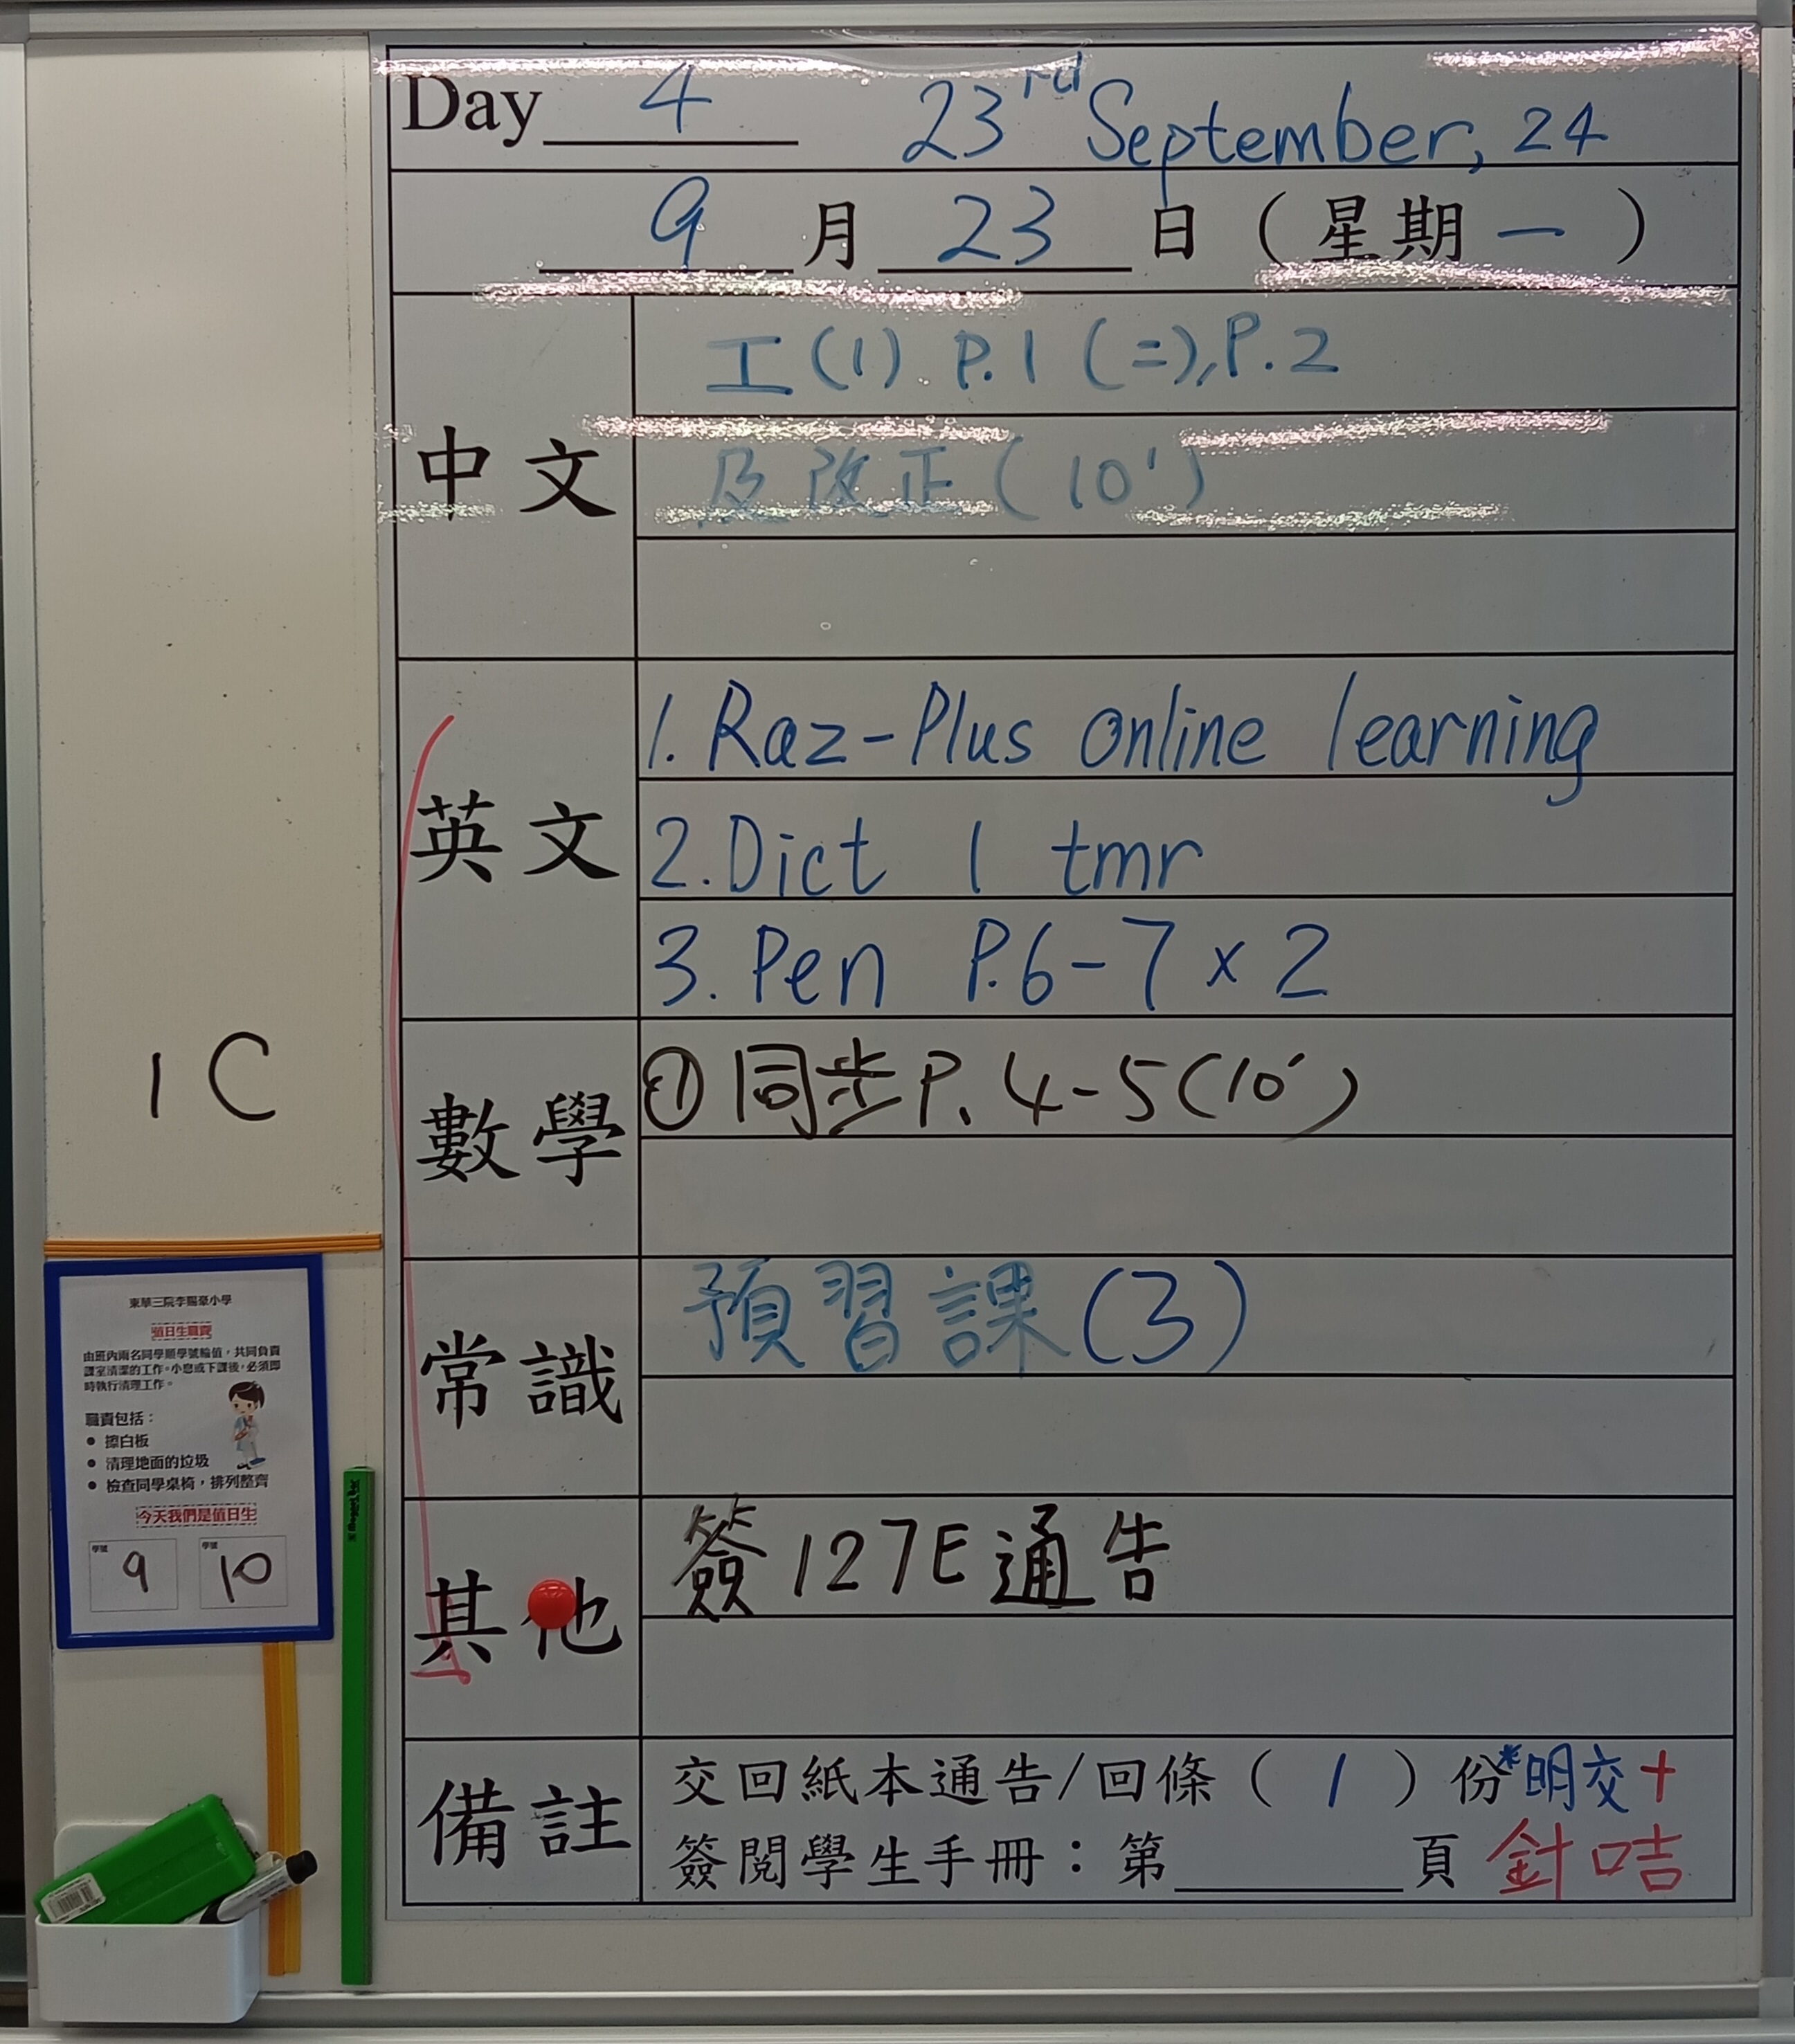 Day 4 23rd September, 24
9 月 23 日 ( 星期 一 )
中文
工(1) P.1 (二), P.2
及改正(10')
英文
1. Raz-Plus online learning
2. Dict 1 tmr
3. Pen P.6-7 x 2
1C
數學
① 同步 P. 4-5 (10')
常識
預習課(3)
其他
簽127E通告
備註
交回紙本通告/回條 ( 1 ) 份 *明交+
簽閱學生手冊：第______頁 針咭
東華三院李賜豪小學
值日生職責
由班內兩名同學順學號輪值，共同負責
課室清潔的工作。小息或下課後，必須即
時執行清理工作。
職責包括：
● 擦白板
● 清理地面的垃圾
● 檢查同學桌椅，排列整齊
今天我們是值日生
學號 9 學號 10